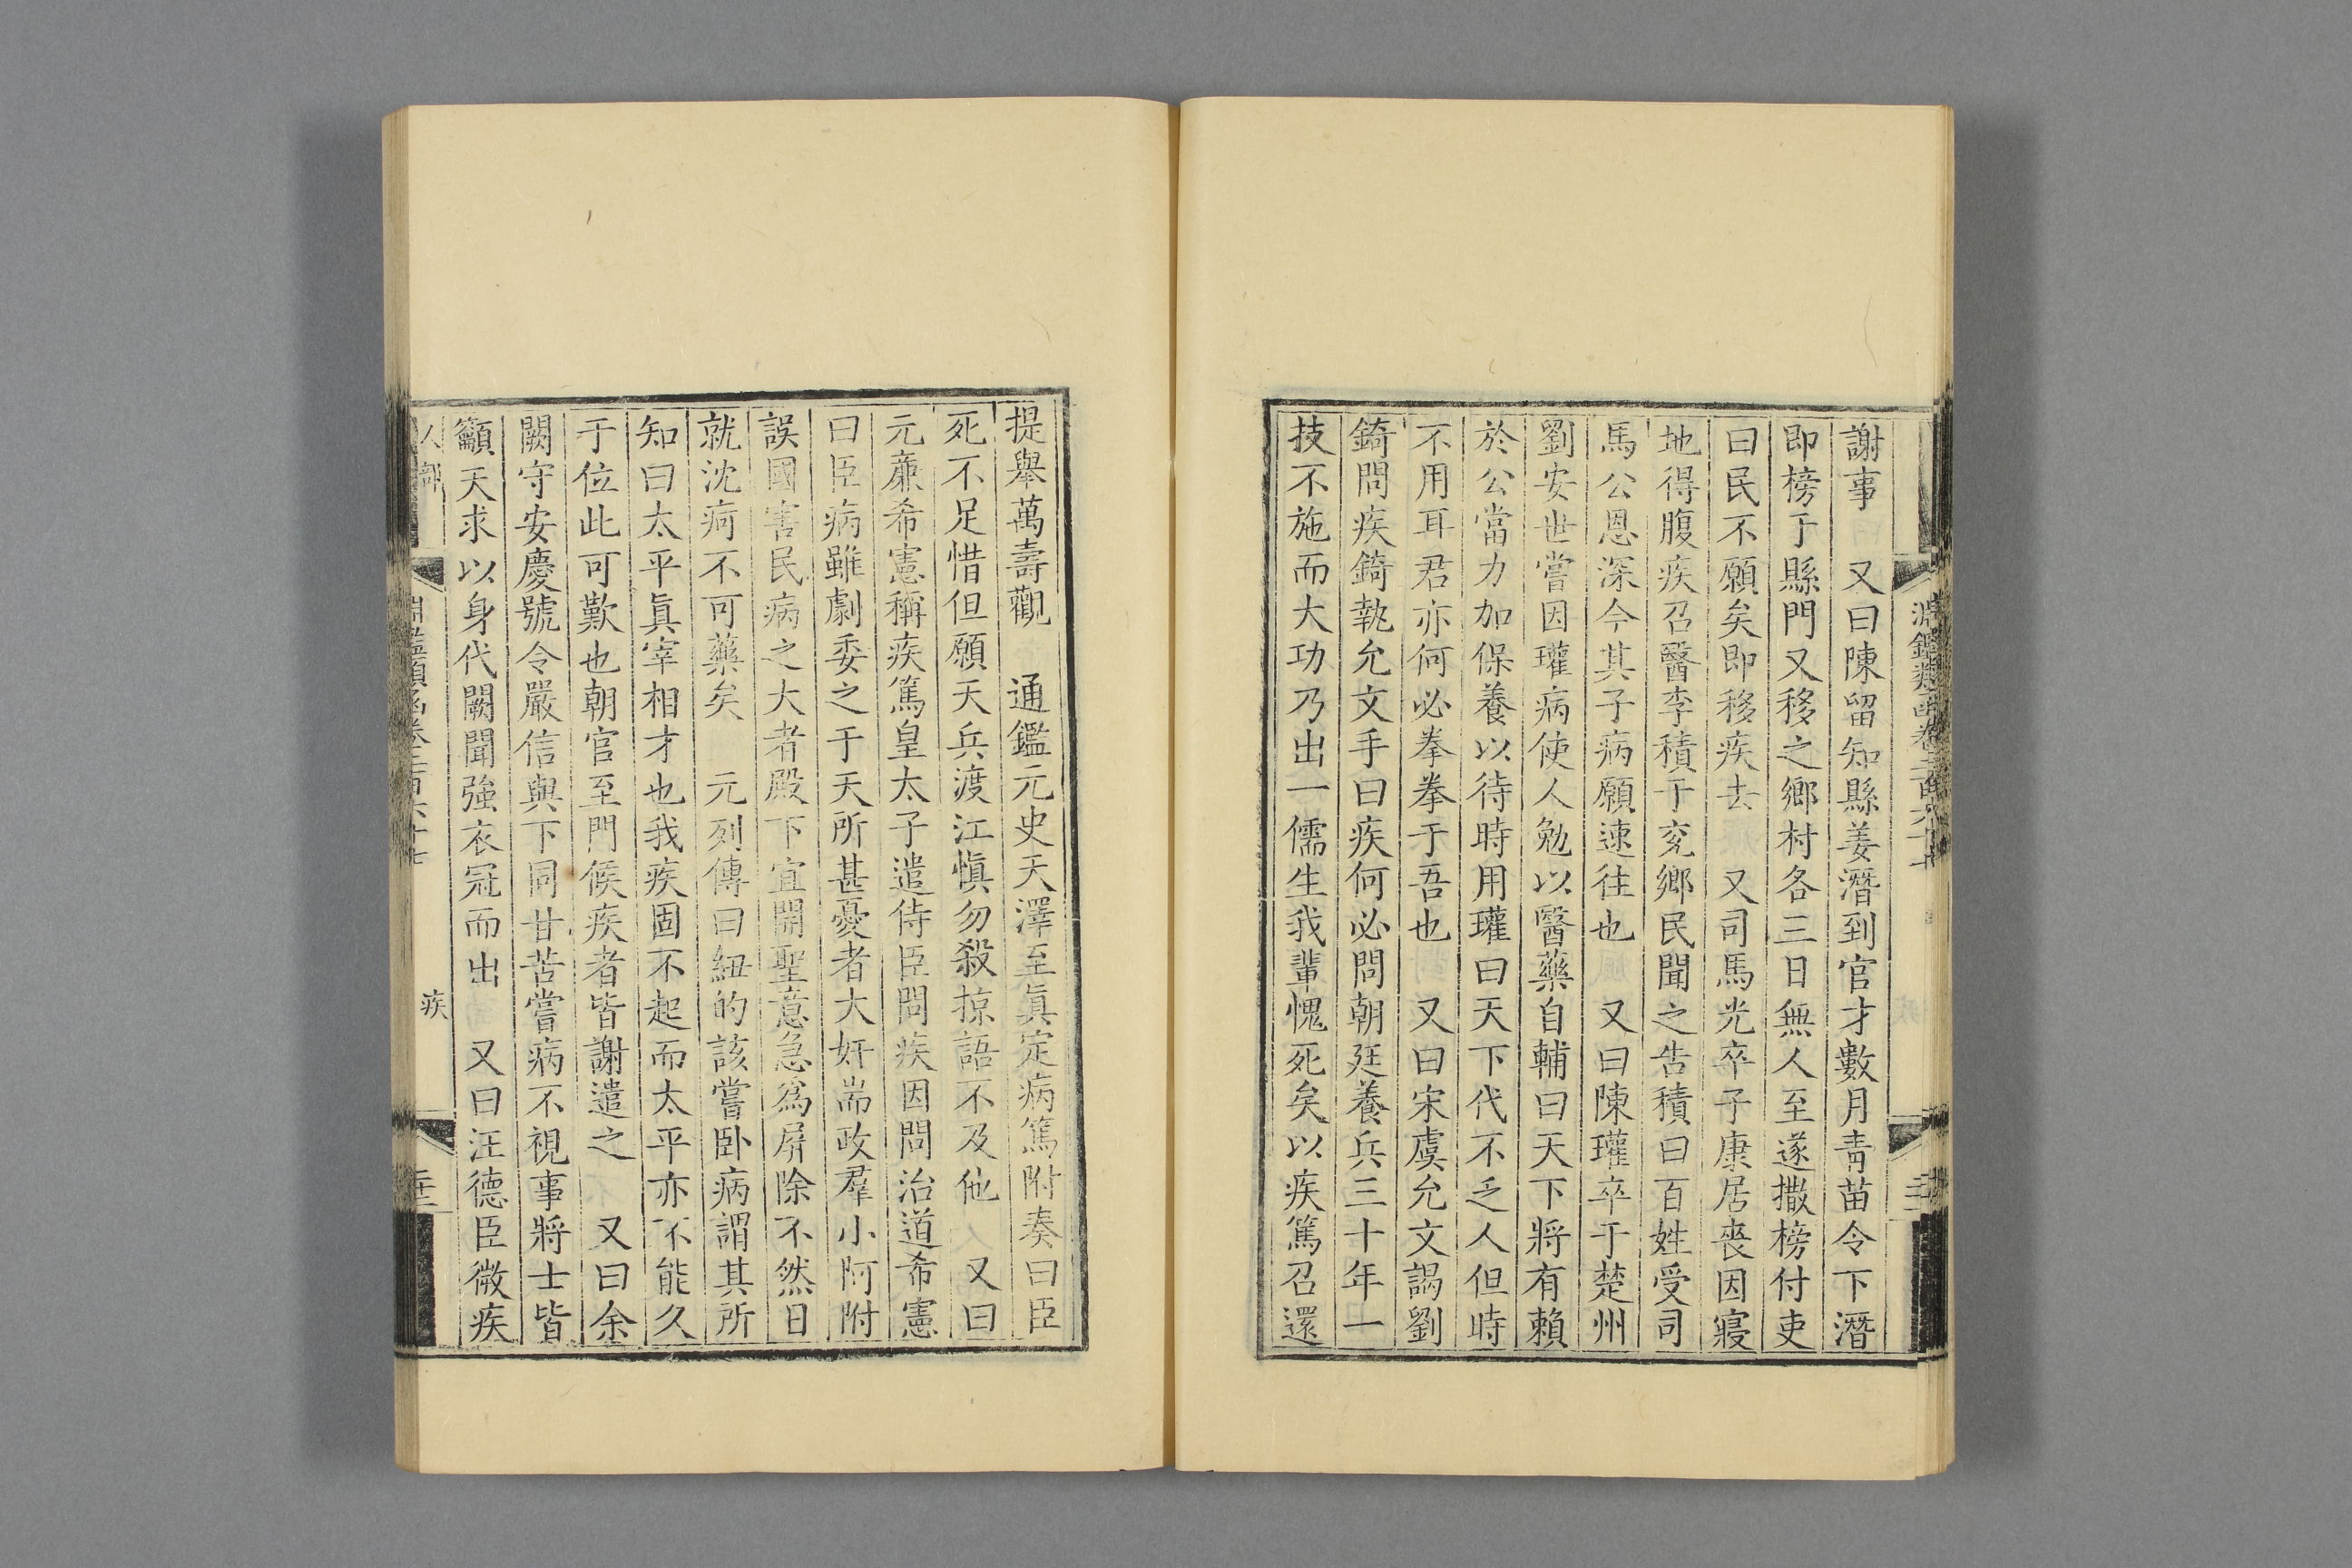 謝事　又曰陳留知縣姜潛到官才數月靑苗令下潛
即榜于縣門又移之鄉村各三日無人至遂撒榜付吏
曰民不願矣即移疾去　又司馬光卒子康居喪因寢
地得腹疾召醫李積于兗鄉民聞之告積曰百姓受司
馬公恩深今其子病願速往也　又曰陳瓘卒于楚州
劉安世嘗因瓘病使人勉以醫藥自輔曰天下將有賴
於公當力加保養以待時用瓘曰天下代不乏人但時
不用耳君亦何必拳拳于吾也　又曰宋虞允文謁劉
錡問疾錡執允文手曰疾何必問朝廷養兵三十年一
技不施而大功乃出一儒生我輩愧死矣以疾篤召還
提舉萬壽觀　通鑑元史天澤至眞定病篤附奏曰臣
死不足惜但願天兵渡江愼勿殺掠語不及他　又曰
元亷希憲稱疾篤皇太子遣侍臣問疾因問治道希憲
曰臣病雖劇委之于天所甚憂者大奸耑政羣小阿附
誤國害民病之大者殿下宜開聖意急爲屏除不然日
就沈痾不可藥矣　元列傳曰紐的該嘗臥病謂其所
知曰太平眞宰相才也我疾固不起而太平亦不能久
于位此可歎也朝官至門候疾者皆謝遣之　又曰余
闕守安慶號令嚴信與下同甘苦嘗病不視事將士皆
籲天求以身代闕聞強衣冠而出　又曰汪德臣微疾
人部
疾